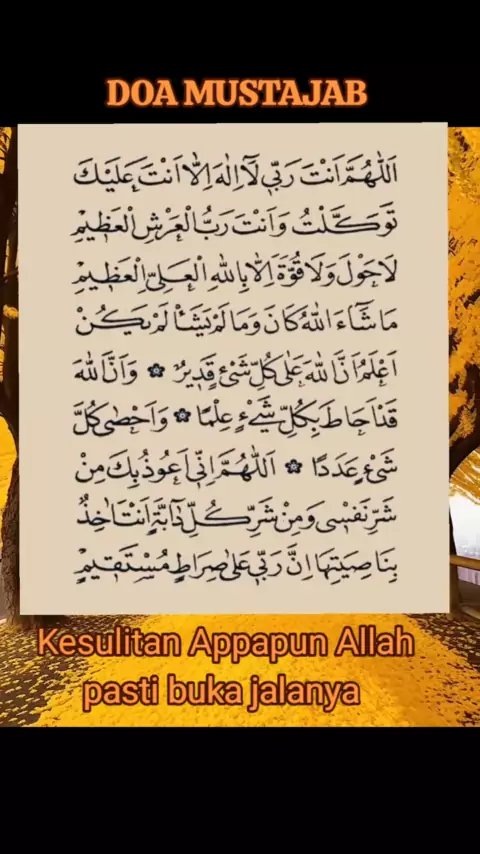 DOA MUSTAJAB
اَللّٰهُمَّ اَنْتَ رَبِّيْ لَآ اِلٰهَ اِلَّا اَنْتَ عَلَيْكَ
تَوَكَّلْتُ وَاَنْتَ رَبُّ الْعَرْشِ الْعَظِيْمِ
لَاحَوْلَ وَلَا قُوَّةَ اِلَّا بِاللهِ الْعَلِيِّ الْعَظِيْمِ
مَاشَآءَ اللهُ كَانَ وَمَا لَمْ يَشَأْ لَمْ يَكُنْ
اَعْلَمُ اَنَّ اللهَ عَلٰى كُلِّ شَيْءٍ قَدِيْرٌ ۞ وَاَنَّ اللهَ
قَدْ اَحَاطَ بِكُلِّ شَيْءٍ عِلْمًا ۞ وَاَحْصٰى كُلَّ
شَيْءٍ عَدَدًا ۞ اَللّٰهُمَّ اِنِّيْ اَعُوْذُ بِكَ مِنْ
شَرِّ نَفْسِيْ وَمِنْ شَرِّ كُلِّ دَآبَّةٍ اَنْتَ اٰخِذٌ
بِنَاصِيَتِهَا اِنَّ رَبِّيْ عَلٰى صِرَاطٍ مُسْتَقِيْمٍ
Kesulitan Appapun Allah
pasti buka jalanya